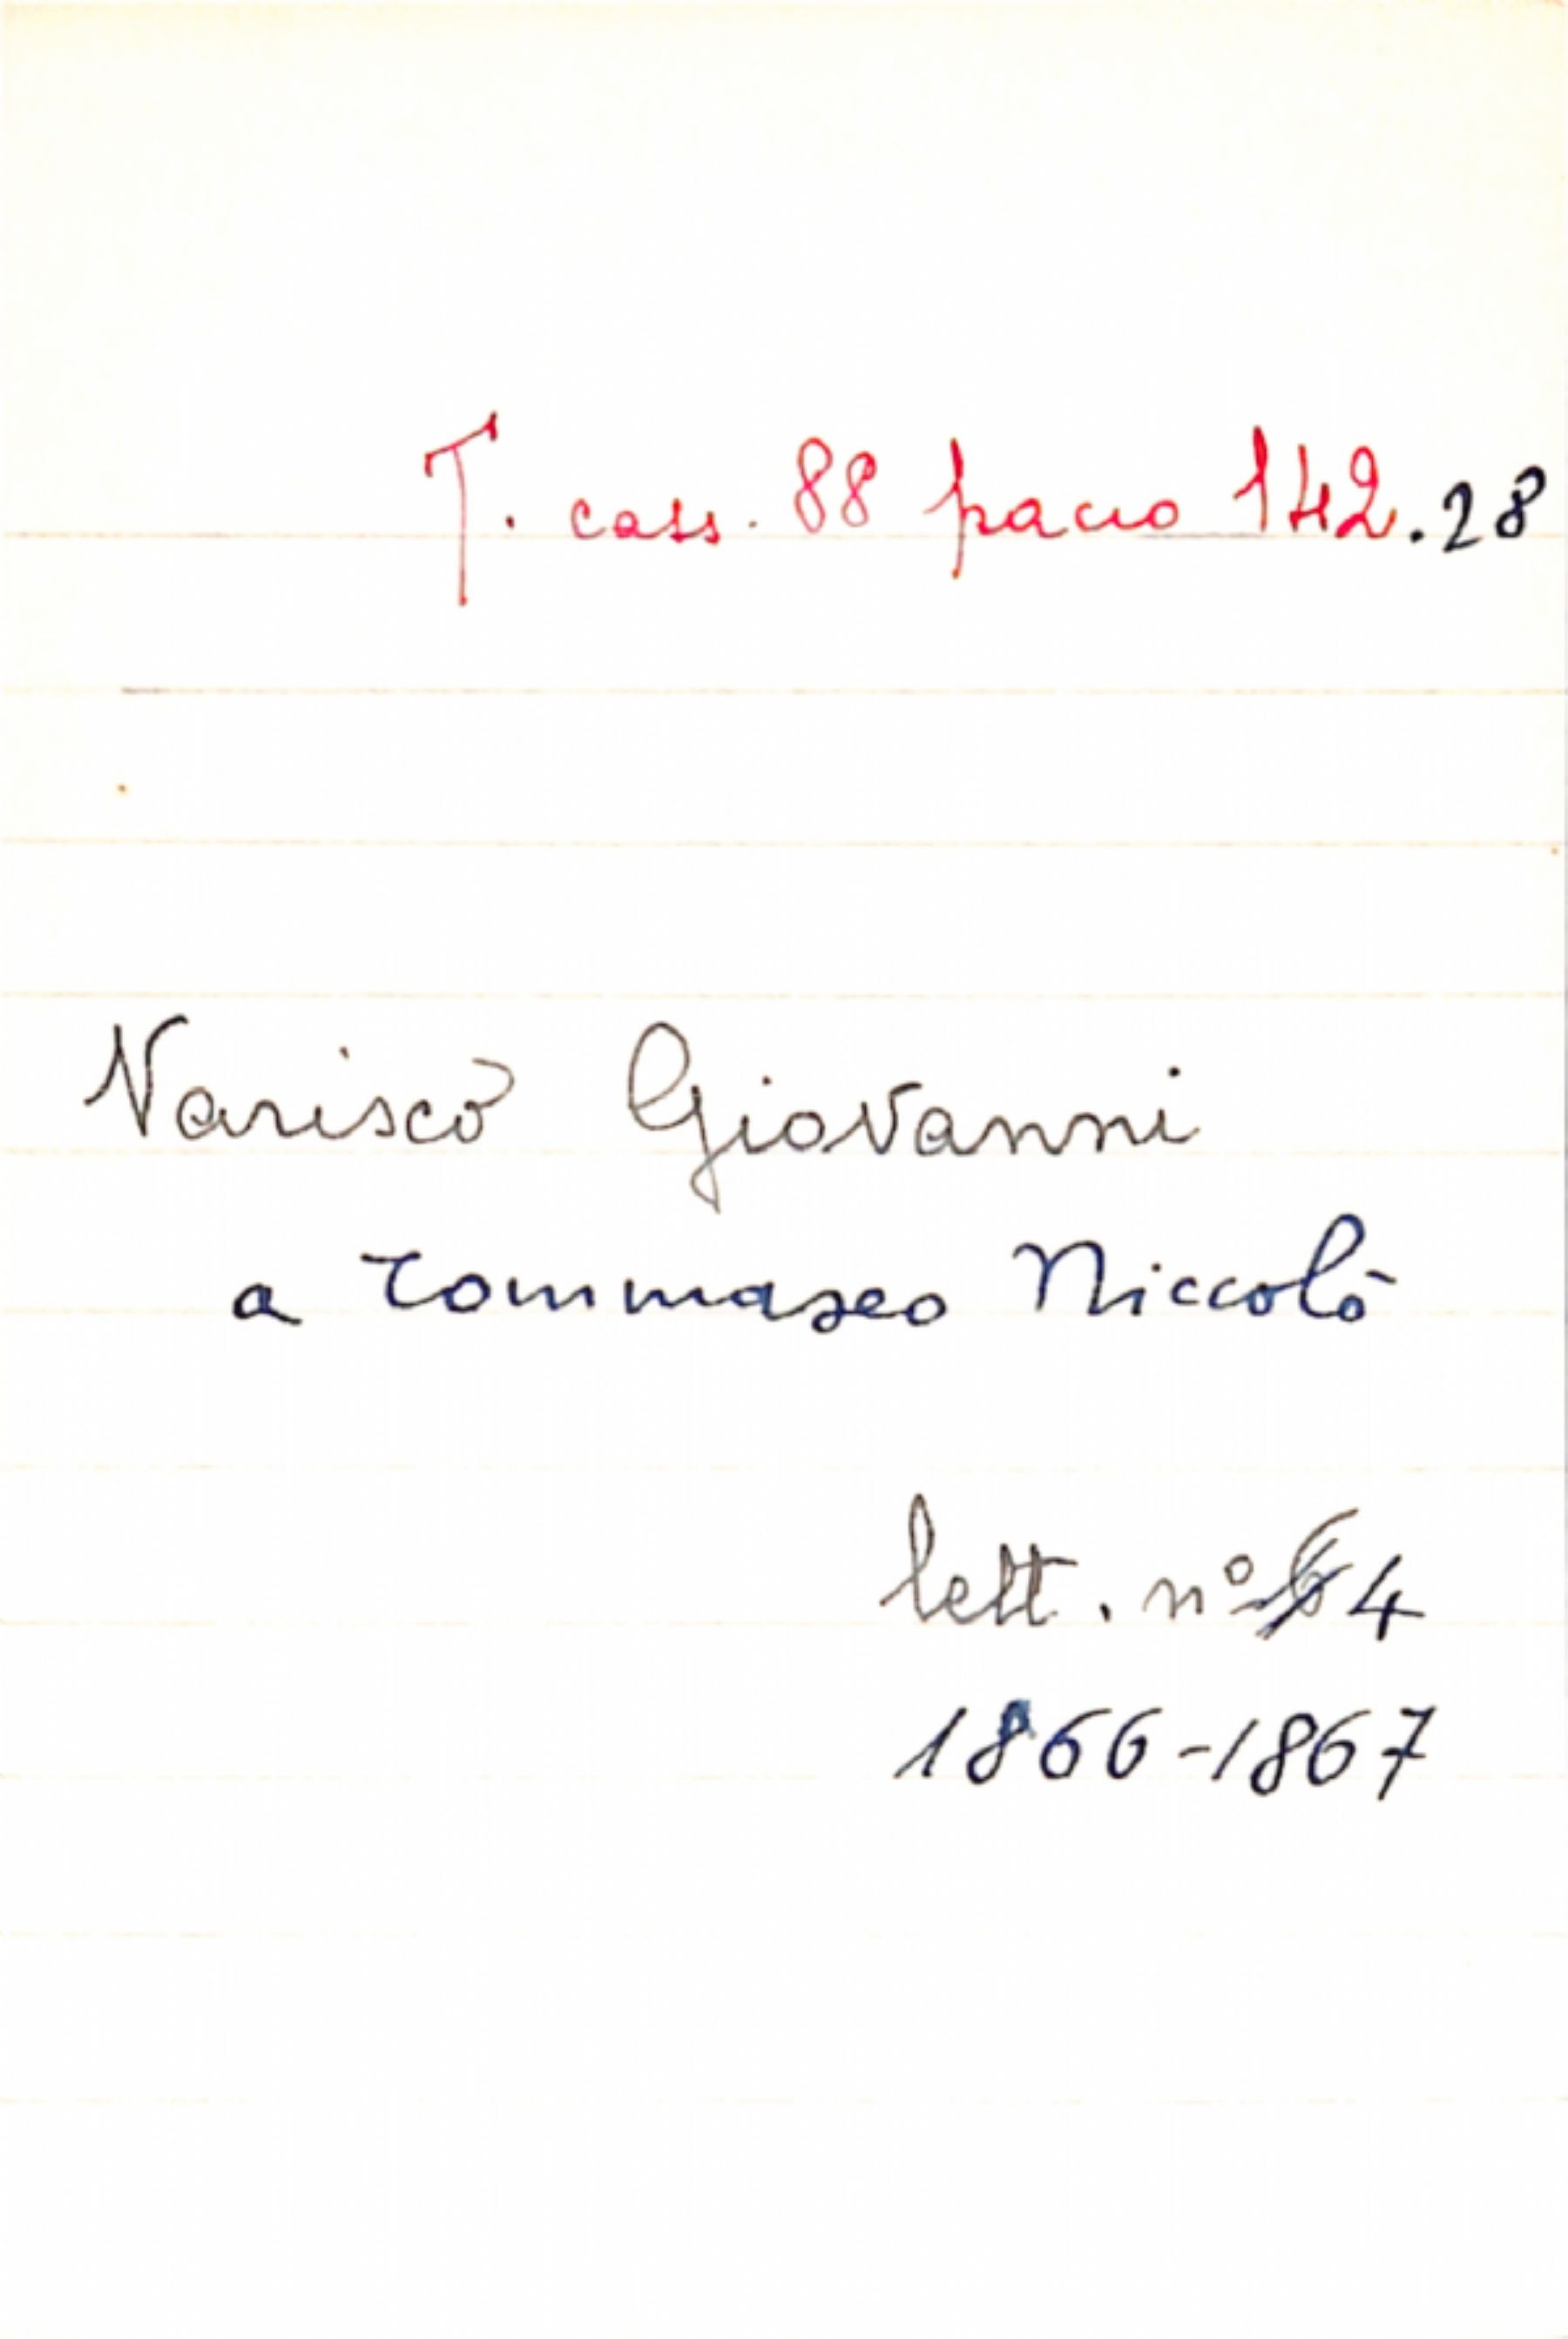 T. cass. 88 pacco 142.28
Variscò Giovanni
a Tommaseo Niccolò
lett. nº 4
1866-1867